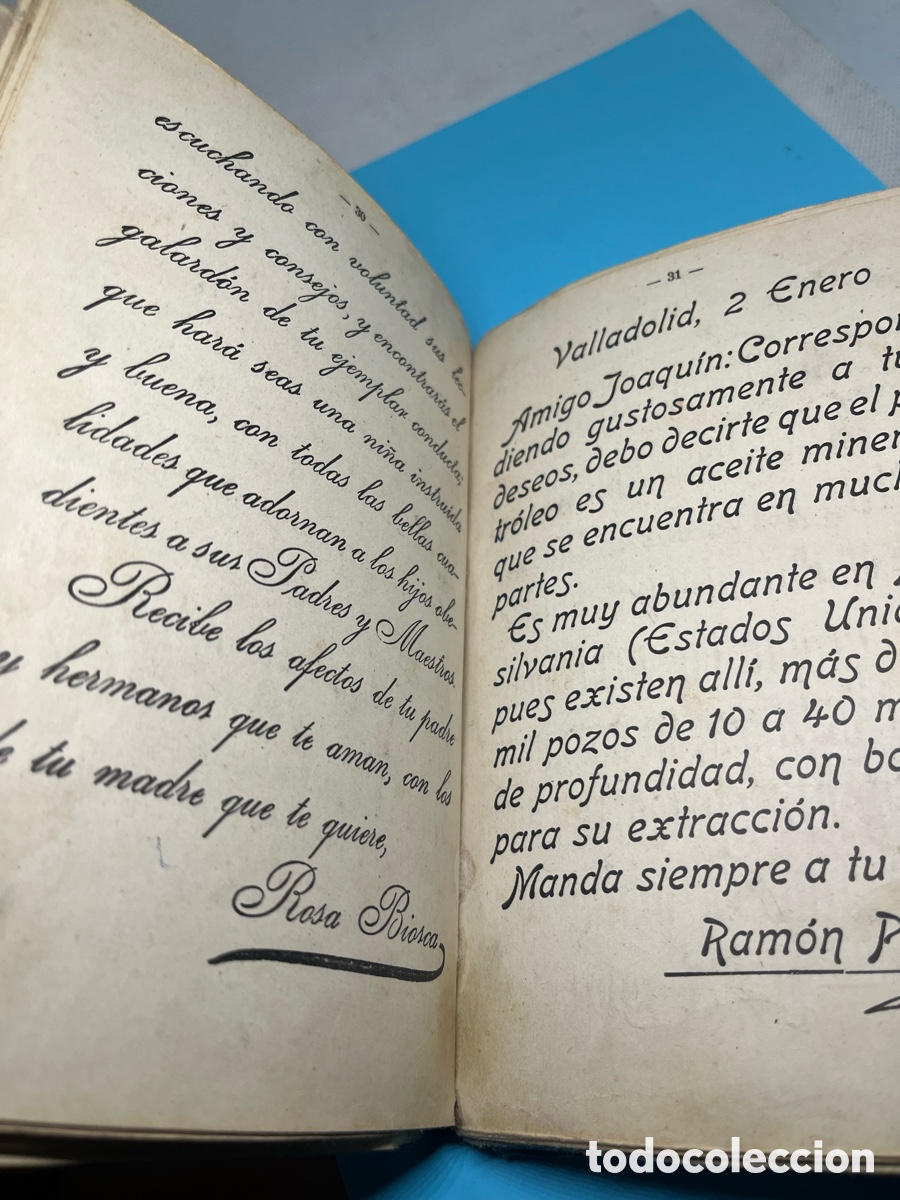 — 30 —
escuchando con voluntad sus lec-
ciones y consejos, y encontrarás el
galardón de tu ejemplar conducta;
que hará seas una niña instruida
y buena, con todas las bellas cua-
lidades que adornan a los hijos obe-
dientes a sus Padres y Maestros.
Recibe los afectos de tu padre
y hermanos que te aman, con los
de tu madre que te quiere,
Rosa Biosca
— 31 —
Valladolid, 2 Enero
Amigo Joaquín: Correspon
diendo gustosamente a tu
deseos, debo decirte que el p
tróleo es un aceite miner
que se encuentra en much
partes.
Es muy abundante en
silvania (Estados Unid
pues existen allí, más d
mil pozos de 10 a 40 m
de profundidad, con bo
para su extracción.
Manda siempre a tu
Ramón P
todocoleccion